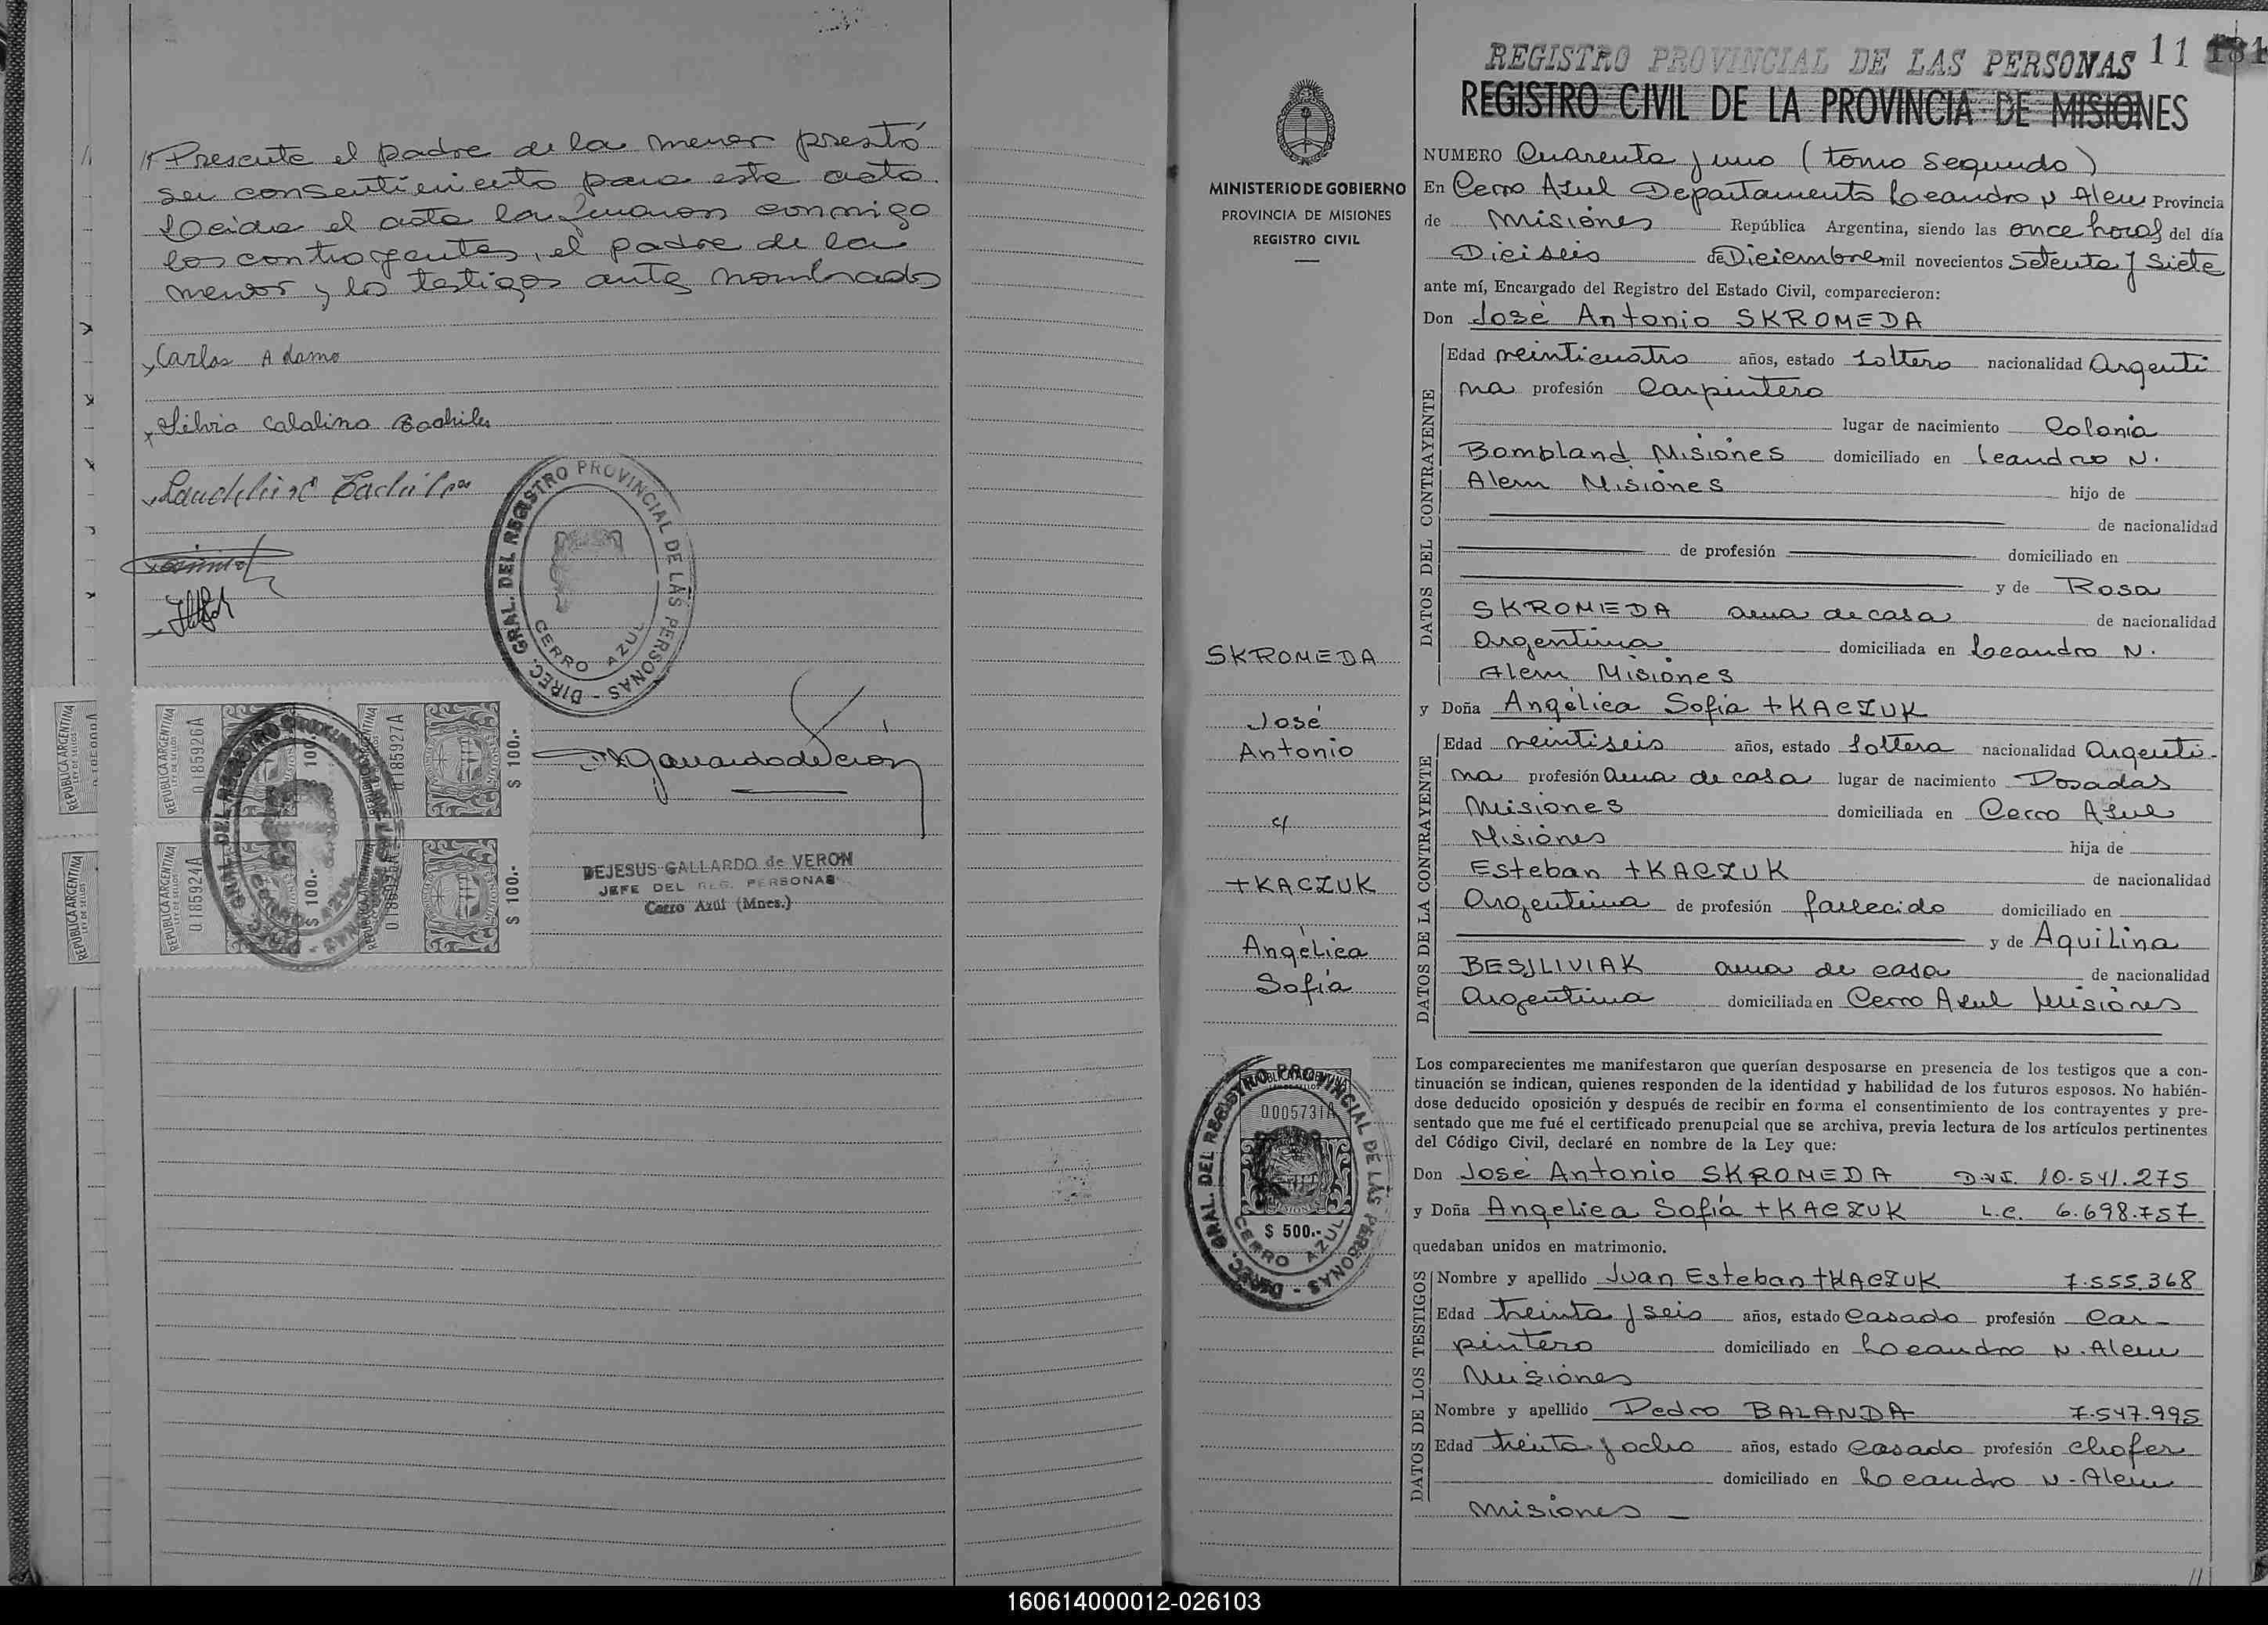 // Presente el padre de la menor prestó
su consentimiento para este acto.
Leida el acta la firmaron conmigo
los contrayentes, el padre de la
menor y los testigos ante nombrados
Carlos Adamo
Silvia Catalina
DIREC. GRAL. DEL REGISTRO PROVINCIAL DE LAS PERSONAS -
CERRO AZUL
REPUBLICA ARGENTINA
0185926A
$ 100.-
REPUBLICA ARGENTINA
0185927A
$ 100.-
REPUBLICA ARGENTINA
0185924A
$ 100.-
$ 100.-
DEJESUS GALLARDO de VERON
JEFE DEL REG. PERSONAS
Cerro Azúl (Mnes.)
MINISTERIO DE GOBIERNO
PROVINCIA DE MISIONES
REGISTRO CIVIL
SKROMEDA
José
Antonio
c/
TKACZUK
Angélica
Sofía
DIREC. GRAL. DEL REGISTRO PROVINCIAL DE LAS PERSONAS -
0005731A
$ 500.-
CERRO AZUL
REGISTRO PROVINCIAL DE LAS PERSONAS 11
REGISTRO CIVIL DE LA PROVINCIA DE MISIONES
NUMERO Cuarenta y uno (tomo segundo)
En Cerro Azul Departamento Leandro N Alem Provincia
de Misiones República Argentina, siendo las once horas del día
Dieiseis de Diciembre mil novecientos Setenta y Siete
ante mí, Encargado del Registro del Estado Civil, comparecieron:
Don José Antonio SKROMEDA
DATOS DEL CONTRAYENTE
Edad veinticuatro años, estado Soltero nacionalidad Argenti
na profesión Carpintero
lugar de nacimiento Colonia
Bompland Misiones domiciliado en Leandro N.
Alem Misiones hijo de
de nacionalidad
de profesión domiciliado en
y de Rosa
SKROMEDA ama de casa de nacionalidad
Argentina domiciliada en Leandro N.
Alem Misiones
y Doña Angélica Sofía TKACZUK
DATOS DE LA CONTRAYENTE
Edad veintiseis años, estado Soltera nacionalidad Argenti-
na profesión ama de casa lugar de nacimiento Posadas
Misiones domiciliada en Cerro Azul
Misiones hija de
Esteban TKACZUK de nacionalidad
Argentina de profesión fallecido domiciliado en
y de Aquilina
BESJLIVIAK ama de casa de nacionalidad
Argentina domiciliada en Cerro Azul Misiones
Los comparecientes me manifestaron que querían desposarse en presencia de los testigos que a con-
tinuación se indican, quienes responden de la identidad y habilidad de los futuros esposos. No habién-
dose deducido oposición y después de recibir en forma el consentimiento de los contrayentes y pre-
sentado que me fué el certificado prenupcial que se archiva, previa lectura de los artículos pertinentes
del Código Civil, declaré en nombre de la Ley que:
Don José Antonio SKROMEDA D.N.I. 10.541.275
y Doña Angelica Sofía TKACZUK L.C. 6.698.757
quedaban unidos en matrimonio.
DATOS DE LOS TESTIGOS
Nombre y apellido Juan Esteban TKACZUK 7.555.368
Edad treinta y seis años, estado Casado profesión Car-
pintero domiciliado en Leandro N. Alem
Misiones
Nombre y apellido Pedro BALANDA 7.547.995
Edad treinta y ocho años, estado Casado profesión chofer
domiciliado en Leandro N. Alem
Misiones
//
160614000012-026103